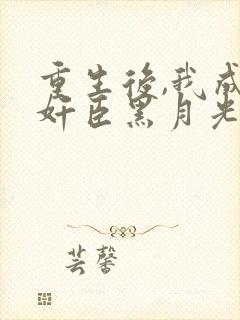 重生後,我成
奸臣黑月光
芸馨